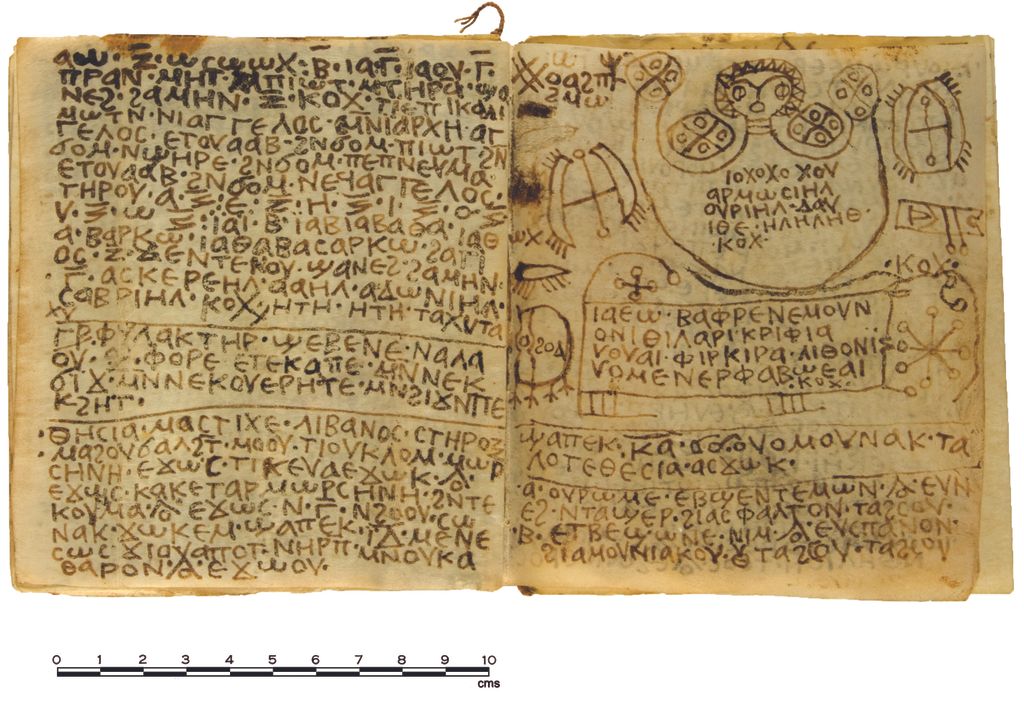 ⲁⲱ · ⲍ̄ · ⲱⲥⲱⲱⲭ · ⲃ̄ · ⲓⲁⲅ̄ · ⲓⲁⲟⲩ · ⲅ̄ ·
ⲡⲣⲁⲛ · ⲙⲡⲓⲱⲧ · ⲙⲡⲧⲏⲣϥ
ⲛⲉⲥ · ϩⲁⲙⲏⲛ · ⲝ̄ · ⲕⲟⲭ · ϯⲉⲡⲓⲕⲁⲗⲓ
ⲙⲱⲧⲛ · ⲛⲓⲁⲅⲅⲉⲗⲟⲥ · ⲙⲛⲓⲁⲣⲭⲏⲁⲅ
ⲅⲉⲗⲟⲥ · ⲉⲧⲟⲩⲁⲁⲃ · ϩⲛϭⲟⲙ · ⲡⲓⲱⲧ · ϩⲛ
ϭⲟⲙ · ⲛⲡϣⲏⲣⲉ · ϩⲛϭⲟⲙ · ⲡⲉⲡⲛⲉⲩⲙⲁ ·
ⲉⲧⲟⲩⲁⲁⲃ · ϩⲛϭⲟⲙ · ⲛⲉϥⲁⲅⲅⲉⲗⲟⲥ ·
ⲧⲏⲣⲟⲩ · ⲁ · ⲍ̄ · ⲉ · ⲍ̄ · ⲏ · ⲍ̄ · ⲓ · ⲍ̄ · ⲟ · ⲍ̄
ⲩ · ⲍ̄ · ⲱ · ⲍ̄ · ⲓⲁⲓ · ⲃ̄ · ⲓⲁⲃⲓⲁⲃⲁⲑⲁ · ⲓⲁⲑ
ⲁ · ⲃⲁⲣⲕⲱ · ⲓⲁⲑⲁⲃⲁⲥⲁⲣⲕⲱ · ϩⲁⲅⲓ
ⲟⲥ · ⲍ̄ · ⲇⲉⲛⲧⲉⲕⲟⲩ · ϣⲁⲛⲉⲥ · ϩⲁⲙⲏⲛ ·
ⲅ̄ · ⲁⲥⲕⲉⲣⲉⲏⲗ · ⲁⲏⲗ · ⲁⲇⲱⲛⲓⲏⲗ ·
ⲥⲁⲃⲣⲓⲏⲗ · ⲕⲟⲭ · ⲏⲧⲏ · ⲏⲧⲏ · ⲧⲁⲭⲩⲧⲁ
ⲭⲩ
ⲫⲩⲗⲁⲕⲧⲏⲣ · ϣⲃⲉⲛⲉ · ⲛⲁⲗⲁ
ⲟⲩ · ϩⲓ · ⲫⲟⲣⲉ · ⲉⲧⲉⲕⲁⲡⲉ · ⲙⲛⲛⲉⲕ
ϭⲓϫ · ⲙⲛⲛⲉⲕⲟⲩⲉⲣⲏⲧⲉ · ⲙⲛϩⲓϫⲛⲡⲉ
ⲕϩⲏⲧ ·
ⲑⲏⲥⲓⲁ · ⲙⲁⲥⲧⲓⲭⲉ · ⲗⲓⲃⲁⲛⲟⲥ · ⲥⲧⲏⲣⲟⲝ
ⲙⲁϩⲟⲩϭⲁⲗϩⲧ · ⲙⲟⲟⲩ · ϯⲟⲩⲕⲗⲟⲙ · ⲙⲱⲣ
ⲥⲏⲛⲏ · ⲉϫⲱⲥ · ϯⲕⲉⲩⲁ ⲉϫⲱⲕ ·
ⲉϫⲱⲥ · ⲕⲁⲕⲉⲧⲁⲣ · ⲙⲱⲣⲥⲏⲛⲏ · ϩⲛⲧⲉ
ⲕⲟⲩⲙⲁ · ⲉϫⲱⲥ · ⲛ · ⲅ · ⲛϩⲟⲟⲩ · ⲥⲱ
ⲛⲁⲕ · ϫⲱⲕⲉⲙ · ϣⲁⲡⲉⲕ · ⲓⲇ · ⲙⲉⲛⲉ
ⲥⲱⲥ · ϫⲓⲟⲩⲁⲡⲟⲧ · ⲛⲏⲣⲡ · ⲙⲛⲟⲩⲕⲁ
ⲑⲁⲣⲟⲛ · ⲉϫⲱⲟⲩ ·
ⲓⲟⲭⲟⲭⲟ ⲭⲟⲩ
ⲁⲣⲙⲱⲥⲓⲏⲗ
ⲟⲩⲣⲓⲏⲗ · ⲇⲁⲩ
ⲓⲑⲉ · ⲏⲗⲏⲗⲏⲑ ·
· ⲕⲟⲭ ·
· ⲕⲟⲭ ·
ⲓⲁⲉⲱ · ⲃⲁⲫⲣⲉⲛⲉⲙⲟⲩⲛ
ⲟⲛⲓⲑⲓⲗⲁⲣⲓⲕⲣⲓⲫⲓⲁ
ⲩⲟⲩⲁⲓ · ⲫⲓⲣⲕⲓⲣⲁ · ⲗⲓⲑⲟⲛⲓ
ⲩⲟⲙⲉⲛⲉⲣⲫⲁⲃⲱⲉⲁⲓ
· ⲕⲟⲭ ·
ϣⲁⲡⲉⲕ · ⲕⲁ · ⲟⲩⲟⲙⲟⲩⲛⲁⲕ · ⲧⲁ
ⲗⲟⲧⲉⲑⲉⲥⲓⲁ · ⲁⲥϫⲱⲕ ·
· ⲁ · ⲟⲩⲣⲱⲙⲉ · ⲉⲃⲱⲉⲛⲧⲉⲙⲱⲛ · ⲉⲩⲛ
ⲉϩ · ⲛⲧⲁϥⲉⲣ · ϩⲓⲁⲥⲫⲁⲗⲧⲟⲛ · ⲧⲁϩⲥⲟⲩ ·
· ⲃ · ⲉⲧⲃⲉⲱⲱⲛⲉ · ⲛⲓⲙ · ⲉⲩⲥⲡⲁⲛⲟⲛ ·
ϩⲓⲁⲙⲟⲩⲛⲓⲁⲕⲟⲩ · ⲧⲁϩⲥⲟⲩ · ⲧⲁϩⲥⲟⲩ